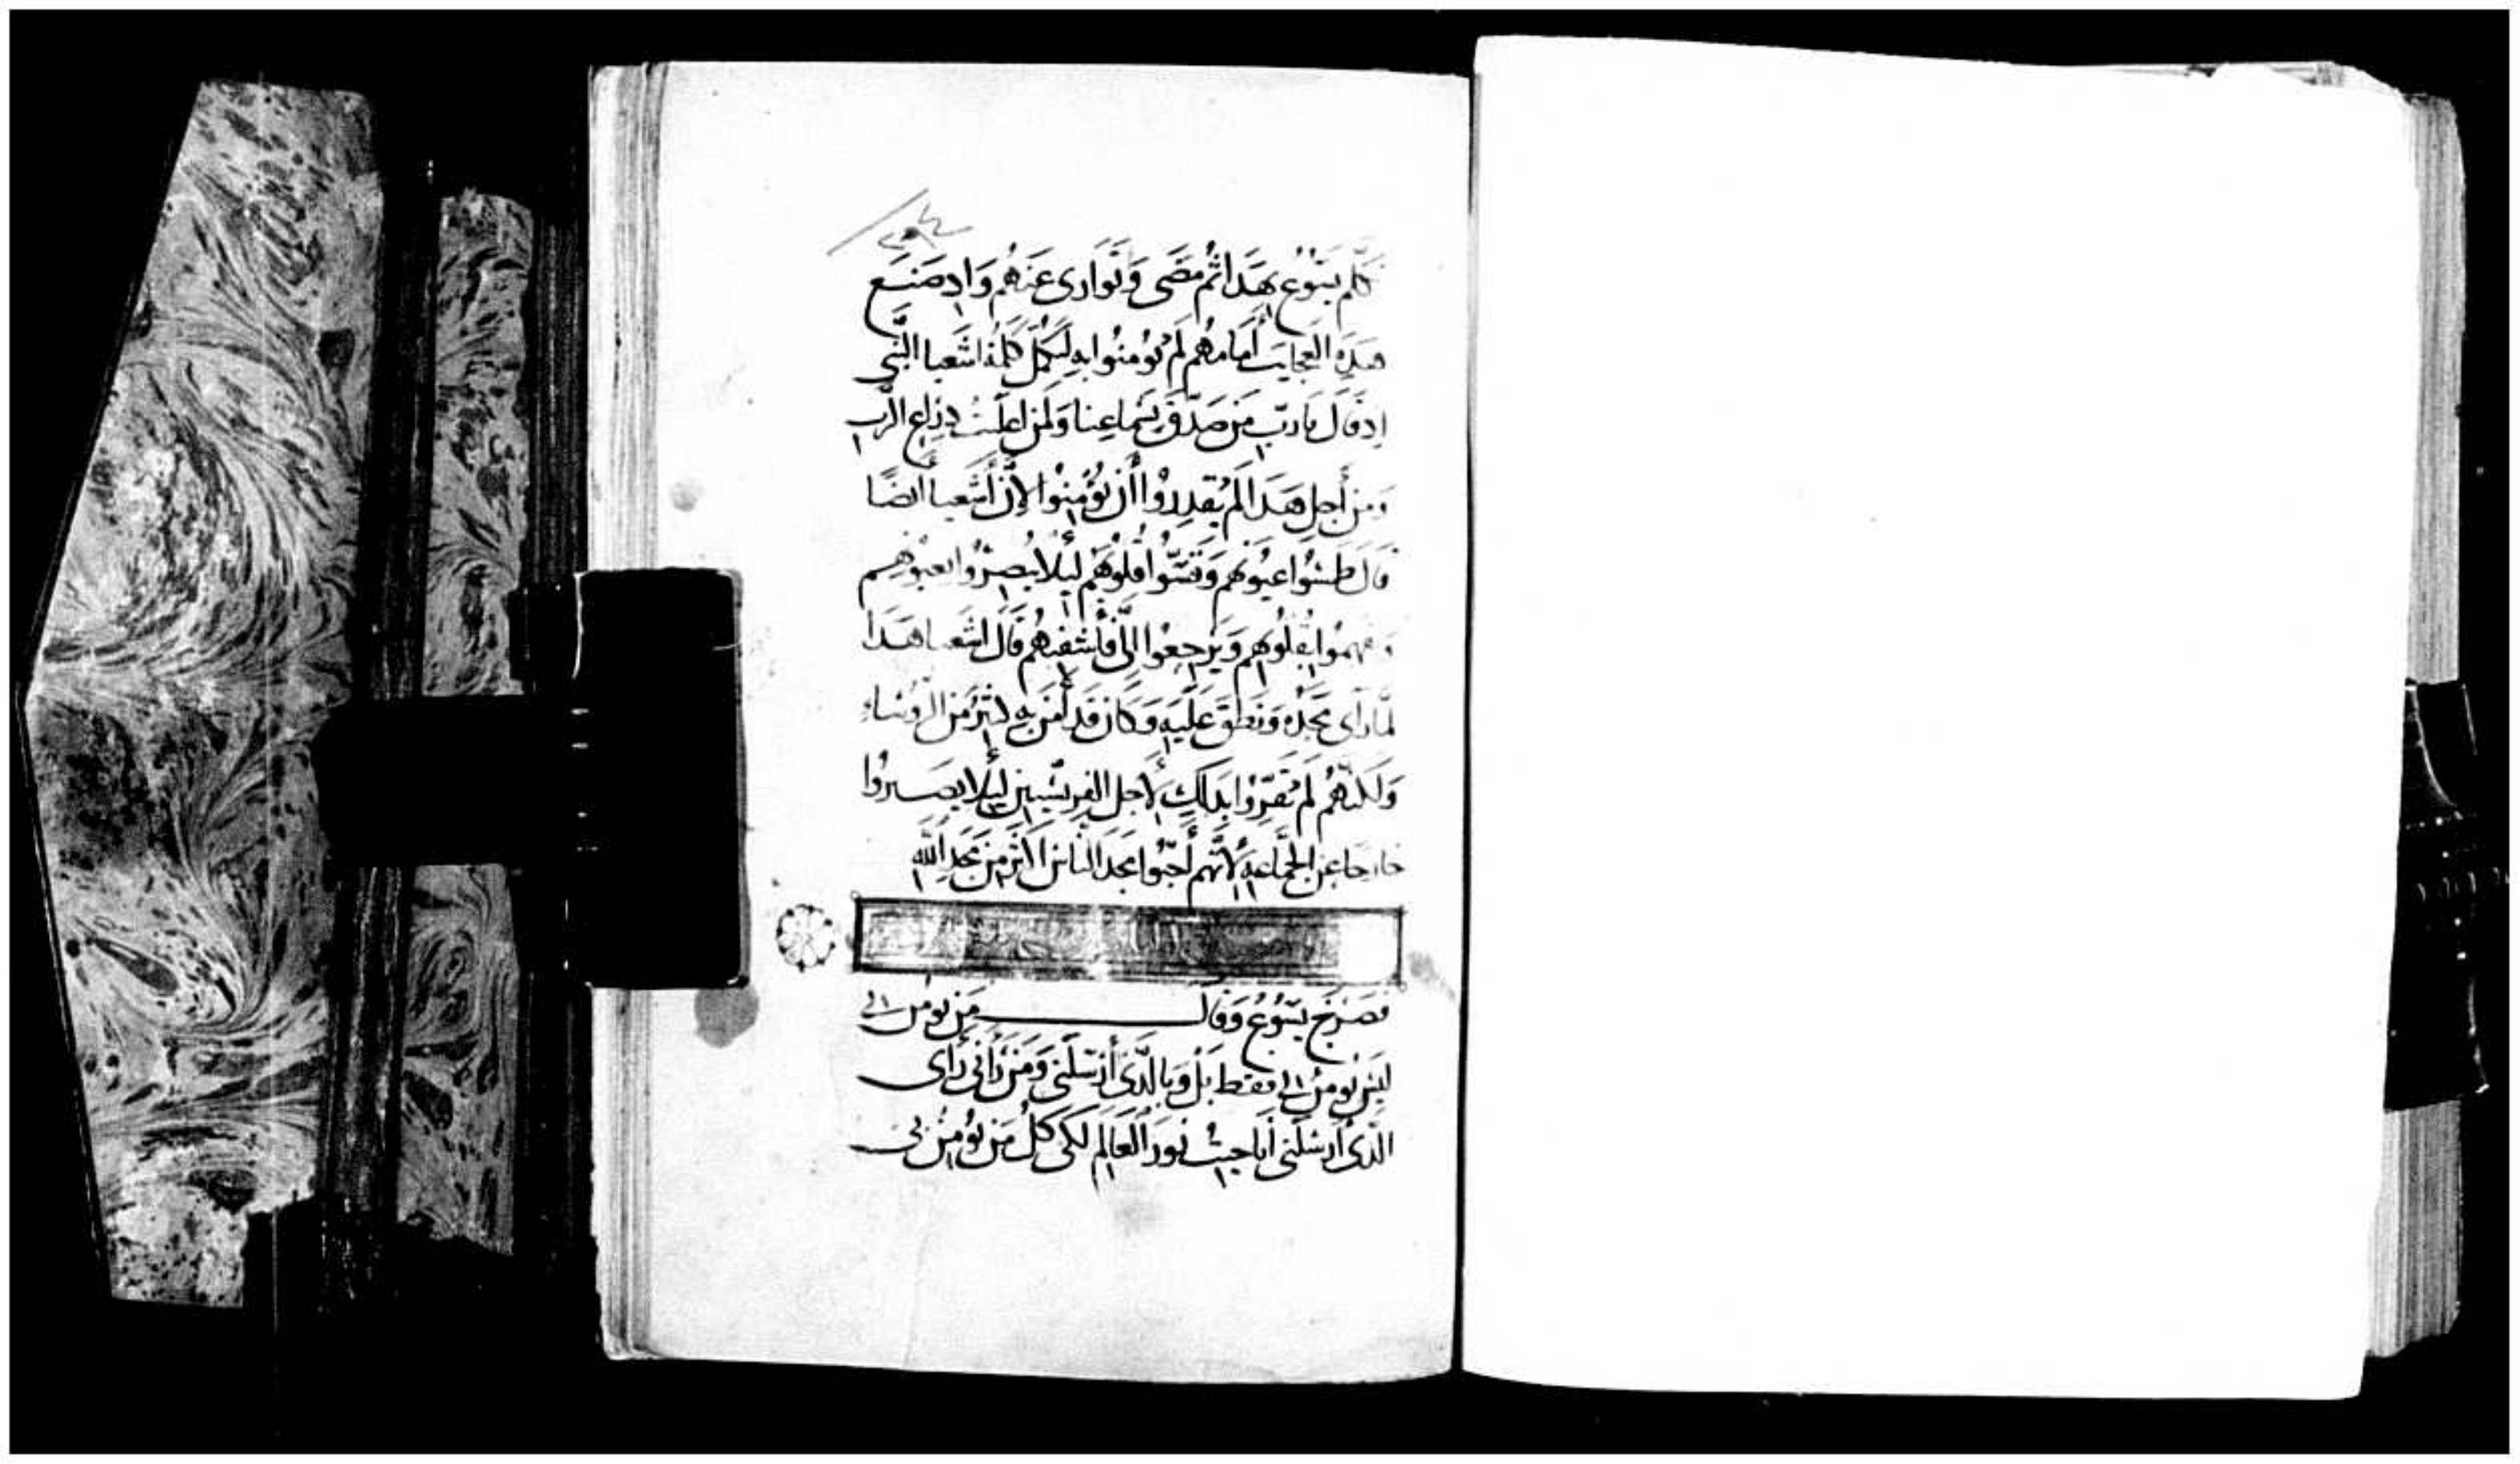 كلم يسوع هدا ثم مضى وتوارى عنهم واد صنع
هده العجايب أمامهم لم يومنوا به لتكمل كلمة اشعيا النبى
اد قال يا رب من صدق بسماعنا ولمن اعلنت دراع الرب
ومن أجل هدا لم يقدروا أن يؤمنوا لان أشعيا ايضا
قال طمسوا عيونهم وقسوا قلوبهم ليلا يبصروا بعيونهم
ويفهموا بقلوبهم ويرجعوا الى فأشفيهم قال اشعيا هدا
لما رأى مجده ونطق عليه وكان قد أمن به كثير من الروساء
ولكنهم لم يقروا بدلك لأجل الفريسيين ليلا يصيروا
خارجا عن الجماعه لأنهم أحبوا مجد الناس اكثر من مجد الله
فصرخ يسوع وقال من يومن بى
ليس يومن بى فقط بل وبالدى أرسلنى ومن رأنى رأى
الدى أرسلنى أنا جيت نور العالم لكى كل من يؤمن بى